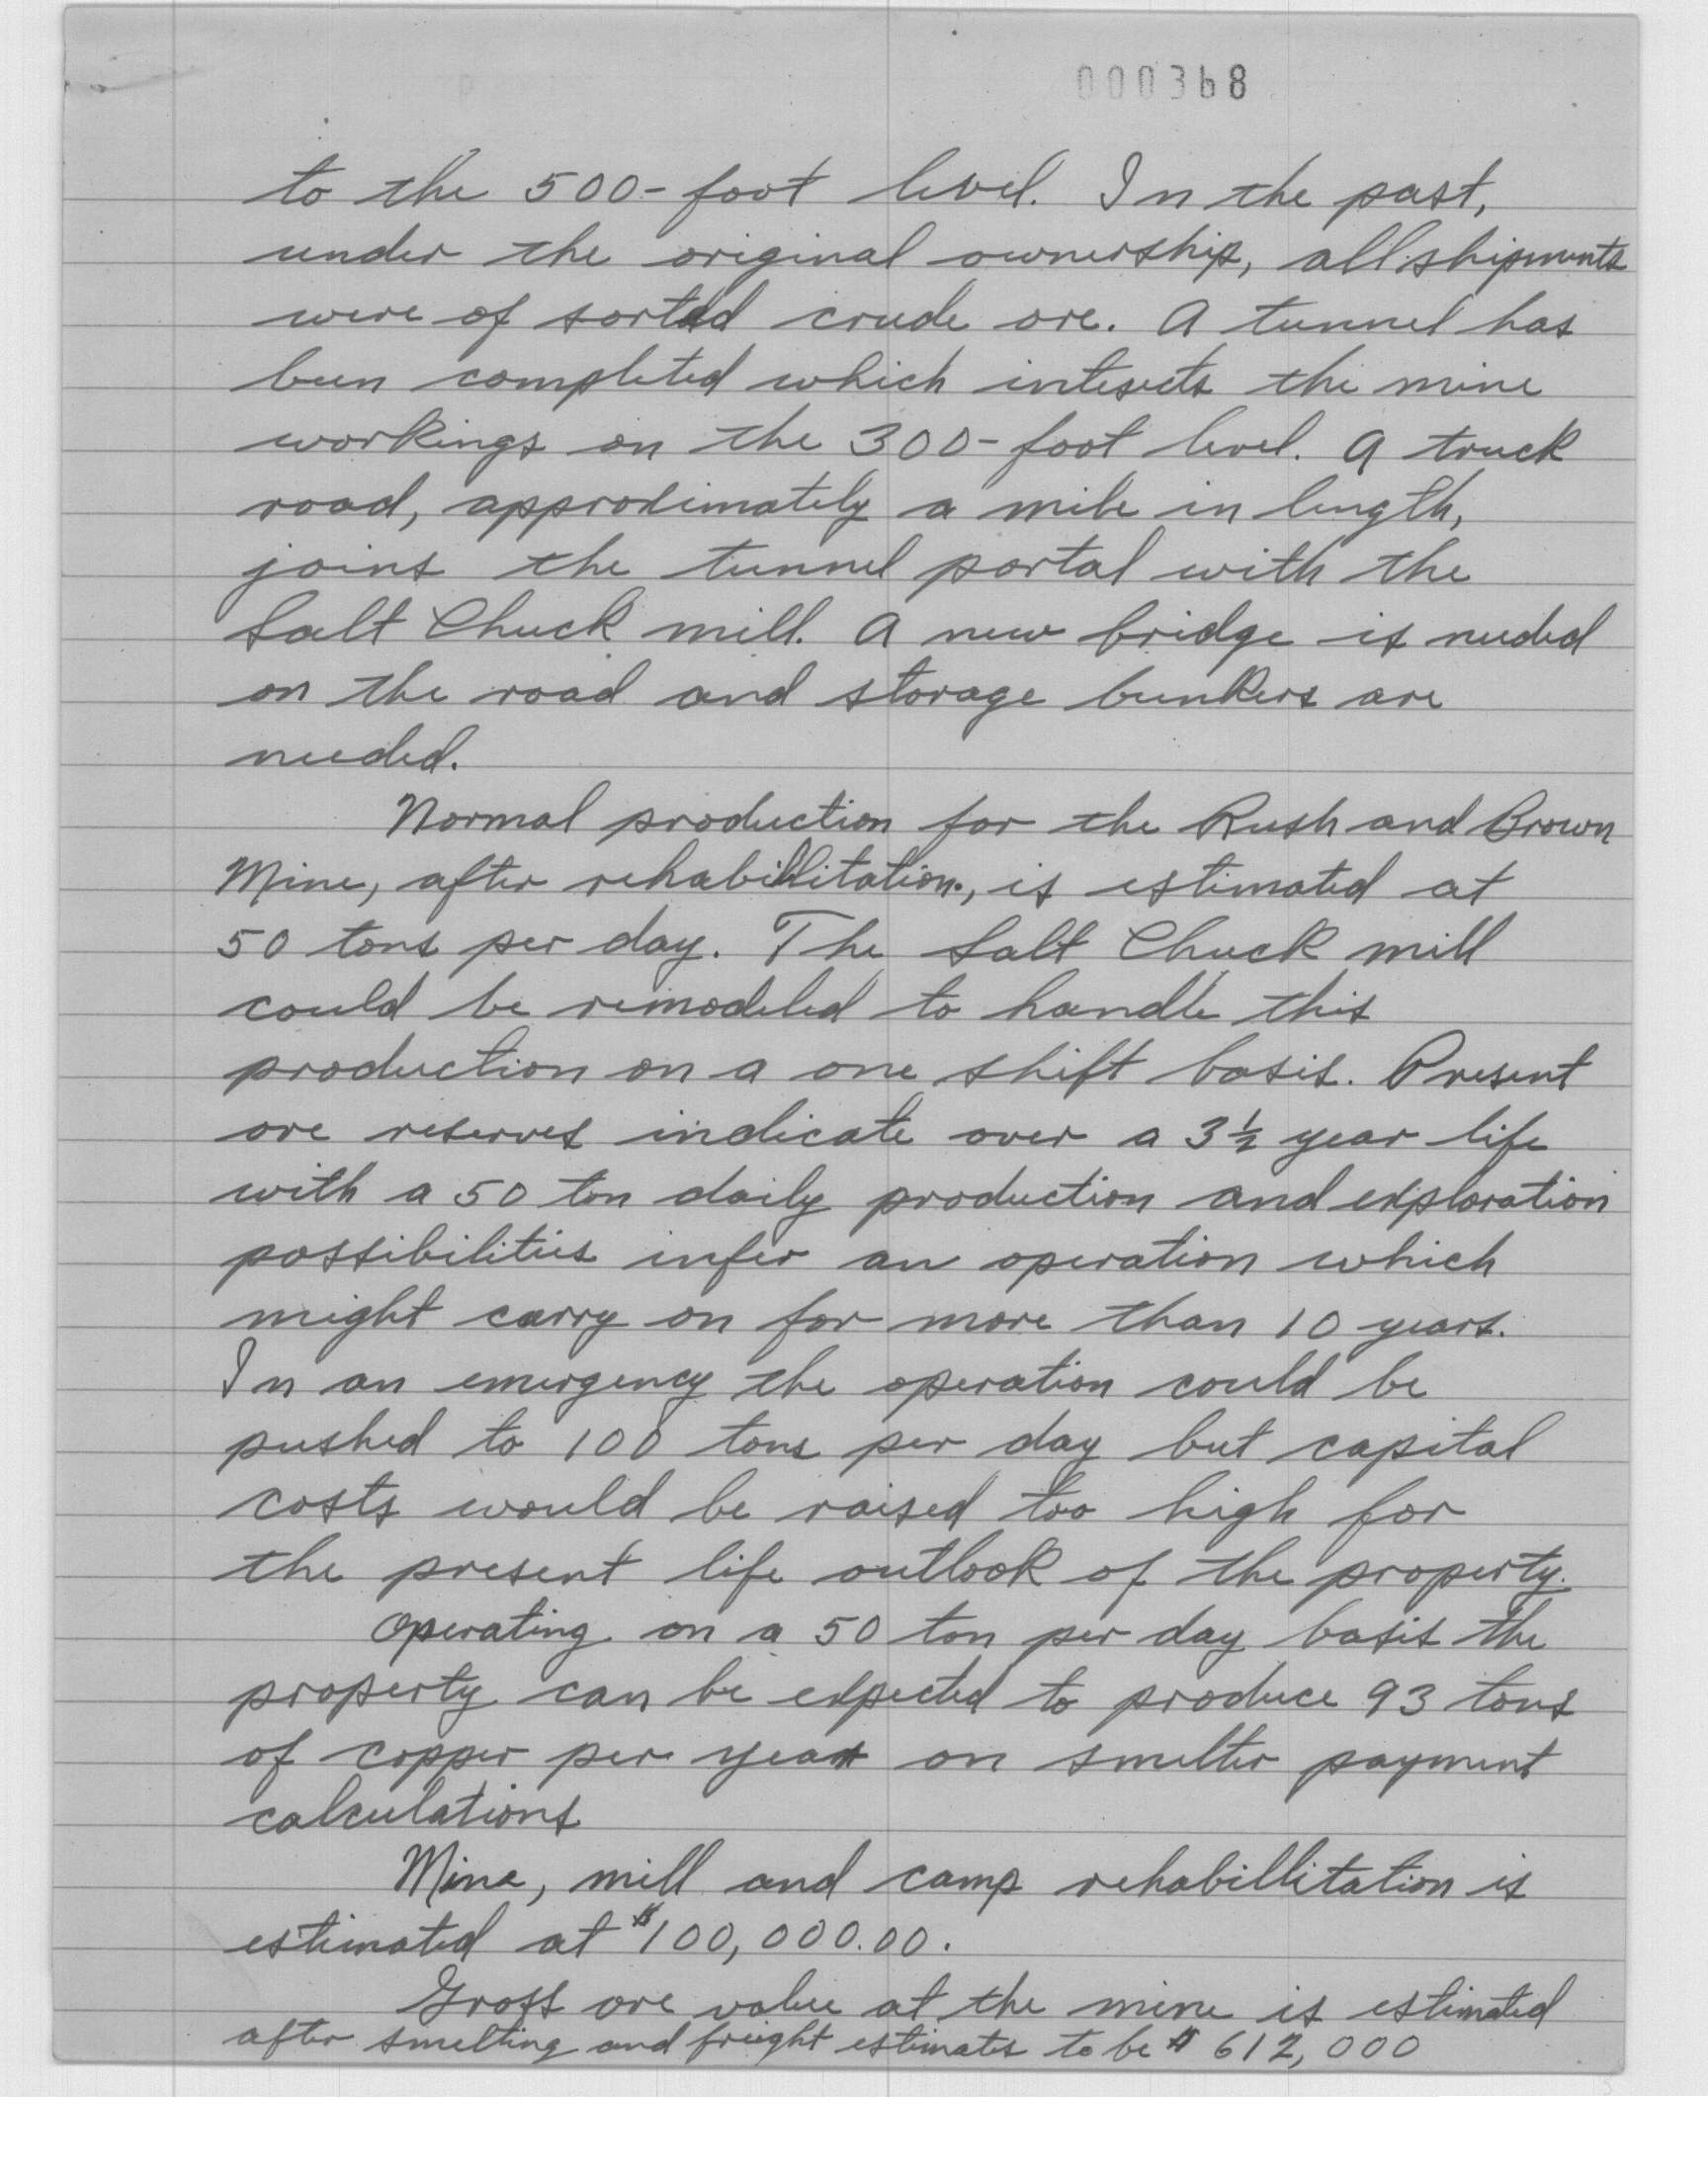 000368
to the 500-foot level. In the past,
under the original ownership, all shipments
were of sorted crude ore. A tunnel has
been completed which intesects the mine
workings on the 300-foot level. A truck
road, approximately a mile in length,
joins the tunnel portal with the
Salt Chuck mill. A new bridge is needed
on the road and storage bunkers are
needed.
Normal production for the Rush and Brown
Mine, after rehabillitation, is estimated at
50 tons per day. The Salt Chuck mill
could be remodeled to handle this
production on a one shift basis. Present
ore reserves indicate over a 3½ year life
with a 50 ton daily production and exploration
possibilities infer an operation which
might carry on for more than 10 years.
In an emergency the operation could be
pushed to 100 tons per day but capital
costs would be raised too high for
the present life outlook of the property.
Operating on a 50 ton per day basis the
property can be expected to produce 93 tons
of copper per year on smelter payment
calculations
Mine, mill and camp rehabillitation is
estimated at $100,000.00.
Gross ore value at the mine is estimated
after smelting and freight estimates to be $612,000